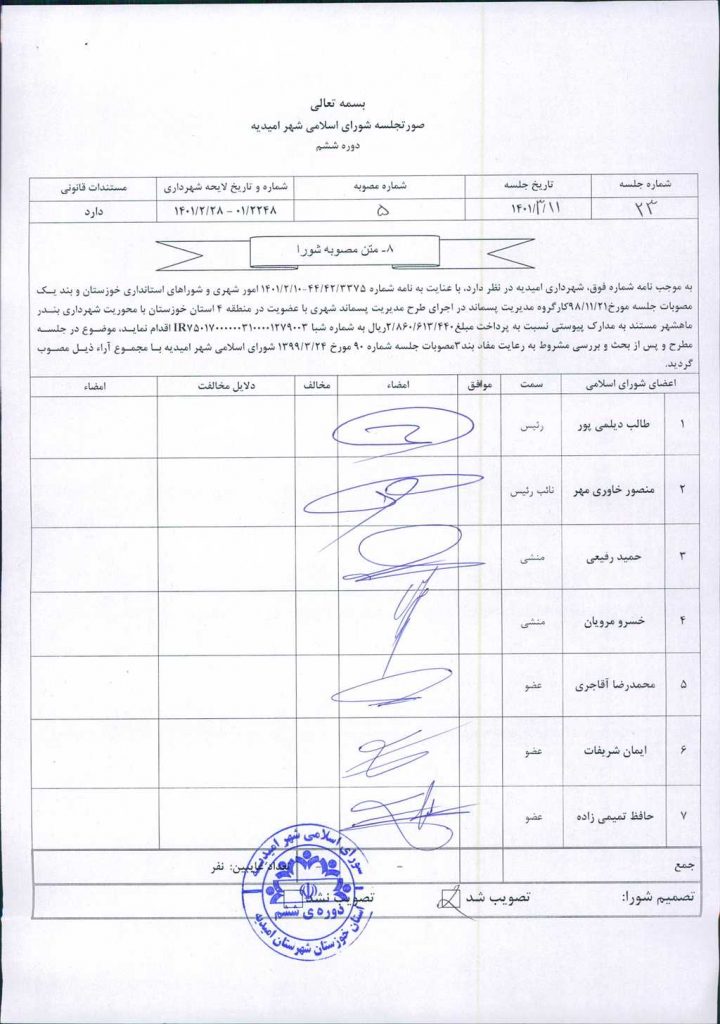 بسمه تعالی
صورتجلسه شورای اسلامی شهر امیدیه
دوره ششم
شماره جلسه تاریخ جلسه شماره مصوبه شماره و تاریخ لایحه شهرداری مستندات قانونی
۲۳ ۱۴۰۱/۳/۱۱ ۵ ۰۱/۲۲۴۸ - ۱۴۰۱/۲/۲۸ دارد
۸- متن مصوبه شورا
به موجب نامه شماره فوق، شهرداری امیدیه در نظر دارد، با عنایت به نامه شماره ۴۴/۴۲/۳۳۷۵-۱۴۰۱/۲/۱۰ امور شهری و شوراهای استانداری خوزستان و بند یک
مصوبات جلسه مورخ۹۸/۱۱/۲۱کارگروه مدیریت پسماند در اجرای طرح مدیریت پسماند شهری با عضویت در منطقه ۴ استان خوزستان با محوریت شهرداری بندر
ماهشهر مستند به مدارک پیوستی نسبت به پرداخت مبلغ۲/۸۶۰/۶۱۳/۴۴۰ریال به شماره شبا IR۷۵۰۱۷۰۰۰۰۰۰۳۱۰۰۰۰۱۲۷۹۰۰۳ اقدام نماید، موضوع در جلسه
مطرح و پس از بحث و بررسی مشروط به رعایت مفاد بند۳مصوبات جلسه شماره ۹۰ مورخ ۱۳۹۹/۳/۲۴ شورای اسلامی شهر امیدیه با مجموع آراء ذیل مصوب
گردید.
اعضای شورای اسلامی سمت موافق امضاء مخالف دلایل مخالفت امضاء
۱ طالب دیلمی پور رئیس
۲ منصور خاوری مهر نائب رئیس
۳ حمید رفیعی منشی
۴ خسرو مرویان منشی
۵ محمدرضا آقاجری عضو
۶ ایمان شریفات عضو
۷ حافظ تمیمی زاده عضو
جمع - تعداد غایبین: نفر
تصمیم شورا: تصویب شد تصویب نشد
شورای اسلامی شهر امیدیه
دوره ی ششم
استان خوزستان شهرستان امیدیه